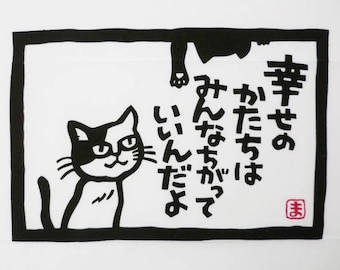 幸せの
かたちは
みんなちがって
いいんだよ
ま